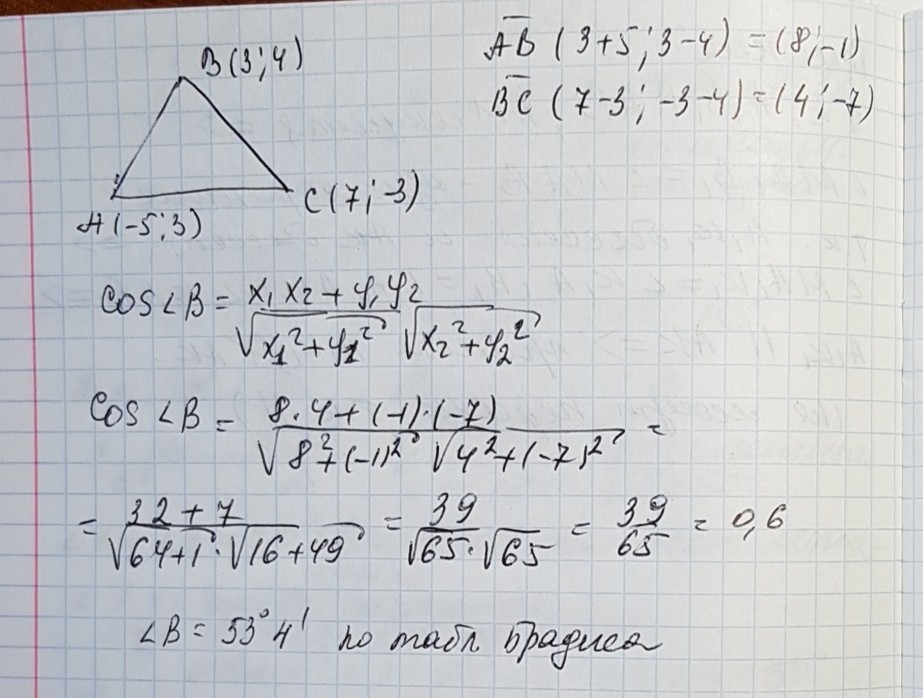 B(3;4)
A(-5;3)
C(7;-3)
AB (3+5; 3-4) = (8;-1)
BC (7-3; -3-4) = (4;-7)
cos∠B = x₁x₂ + y₁y₂ / √x₁²+y₁² √x₂²+y₂²
cos∠B = 8·4+(-1)·(-7) / √8²+(-1)² √4²+(-7)² =
= 32+7 / √64+1 · √16+49 = 39 / √65·√65 = 39/65 = 0,6
∠B = 53°4' по табл Брадиса